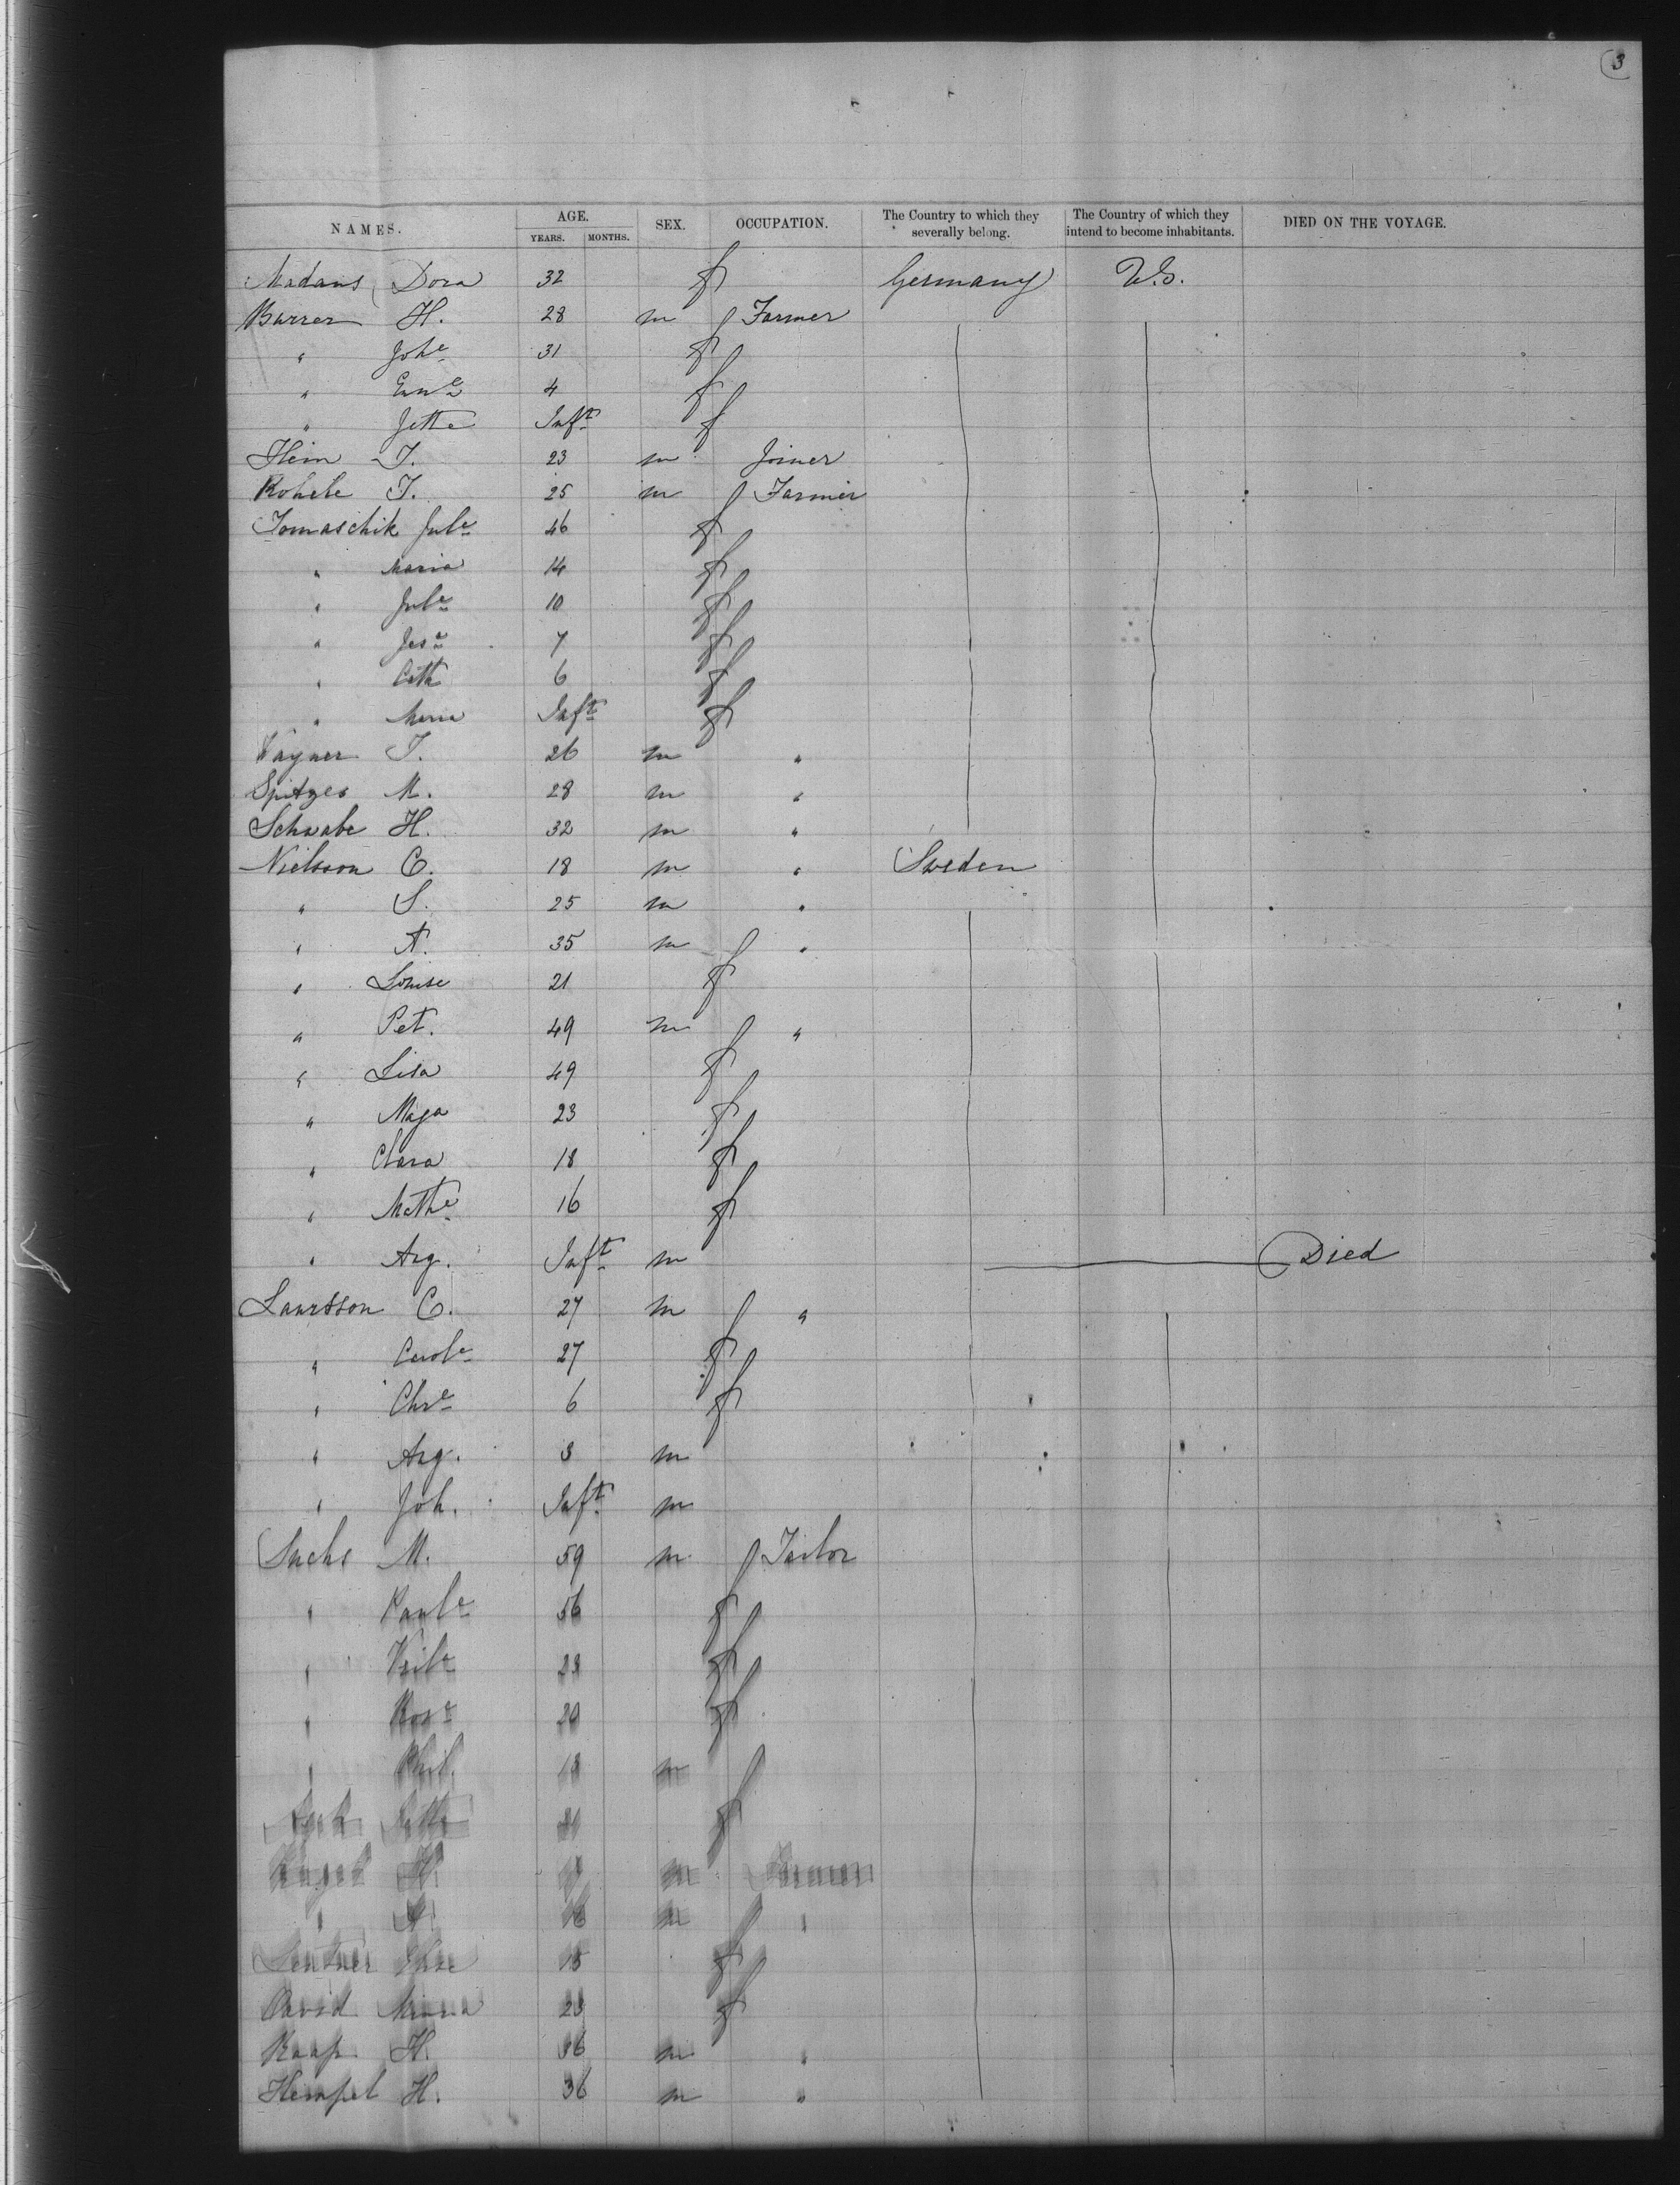 3
NAMES. AGE. YEARS. MONTHS. SEX. OCCUPATION. The Country to which they severally belong. The Country of which they intend to become inhabitants. DIED ON THE VOYAGE.
Madans Dora 32 f Germany U.S.
Barrer H. 28 m Farmer
" Johe 31 f
" Erne 4 f
" Jette Inft f
Hein J. 23 m Joiner
Kohele J. 25 m Farmer
Tomaschik Jule 46 f
" Maria 14 f
" Jule 10 f
" Jose 7 f
" Cath 6 f
" Maria Inft f
Wagner J. 26 m "
Spitzer M. 28 m "
Schwabe H. 32 m "
Nielsson C. 18 m " Sweden
" S. 25 m "
" A. 35 m "
" Louise 21 f
" Pet. 49 m "
" Lisa 49 f
" Maja 23 f
" Clara 18 f
" Mathe 16 f
" Aug. Inft m Died
Laursson C. 27 m "
" Carole 27 f
" Chre 6 f
" Aug. 3 m
" Joh. Inft m
Sachs M. 59 m Tailor
" Paule 56 f
" 23 f
" Rosa 20 f
" Phil. 18 m
f
H. m Farmer
" 16 m "
Lentner 18 f
David Minna 23 f
Kaap H. 36 m "
Hempel H. 36 m "